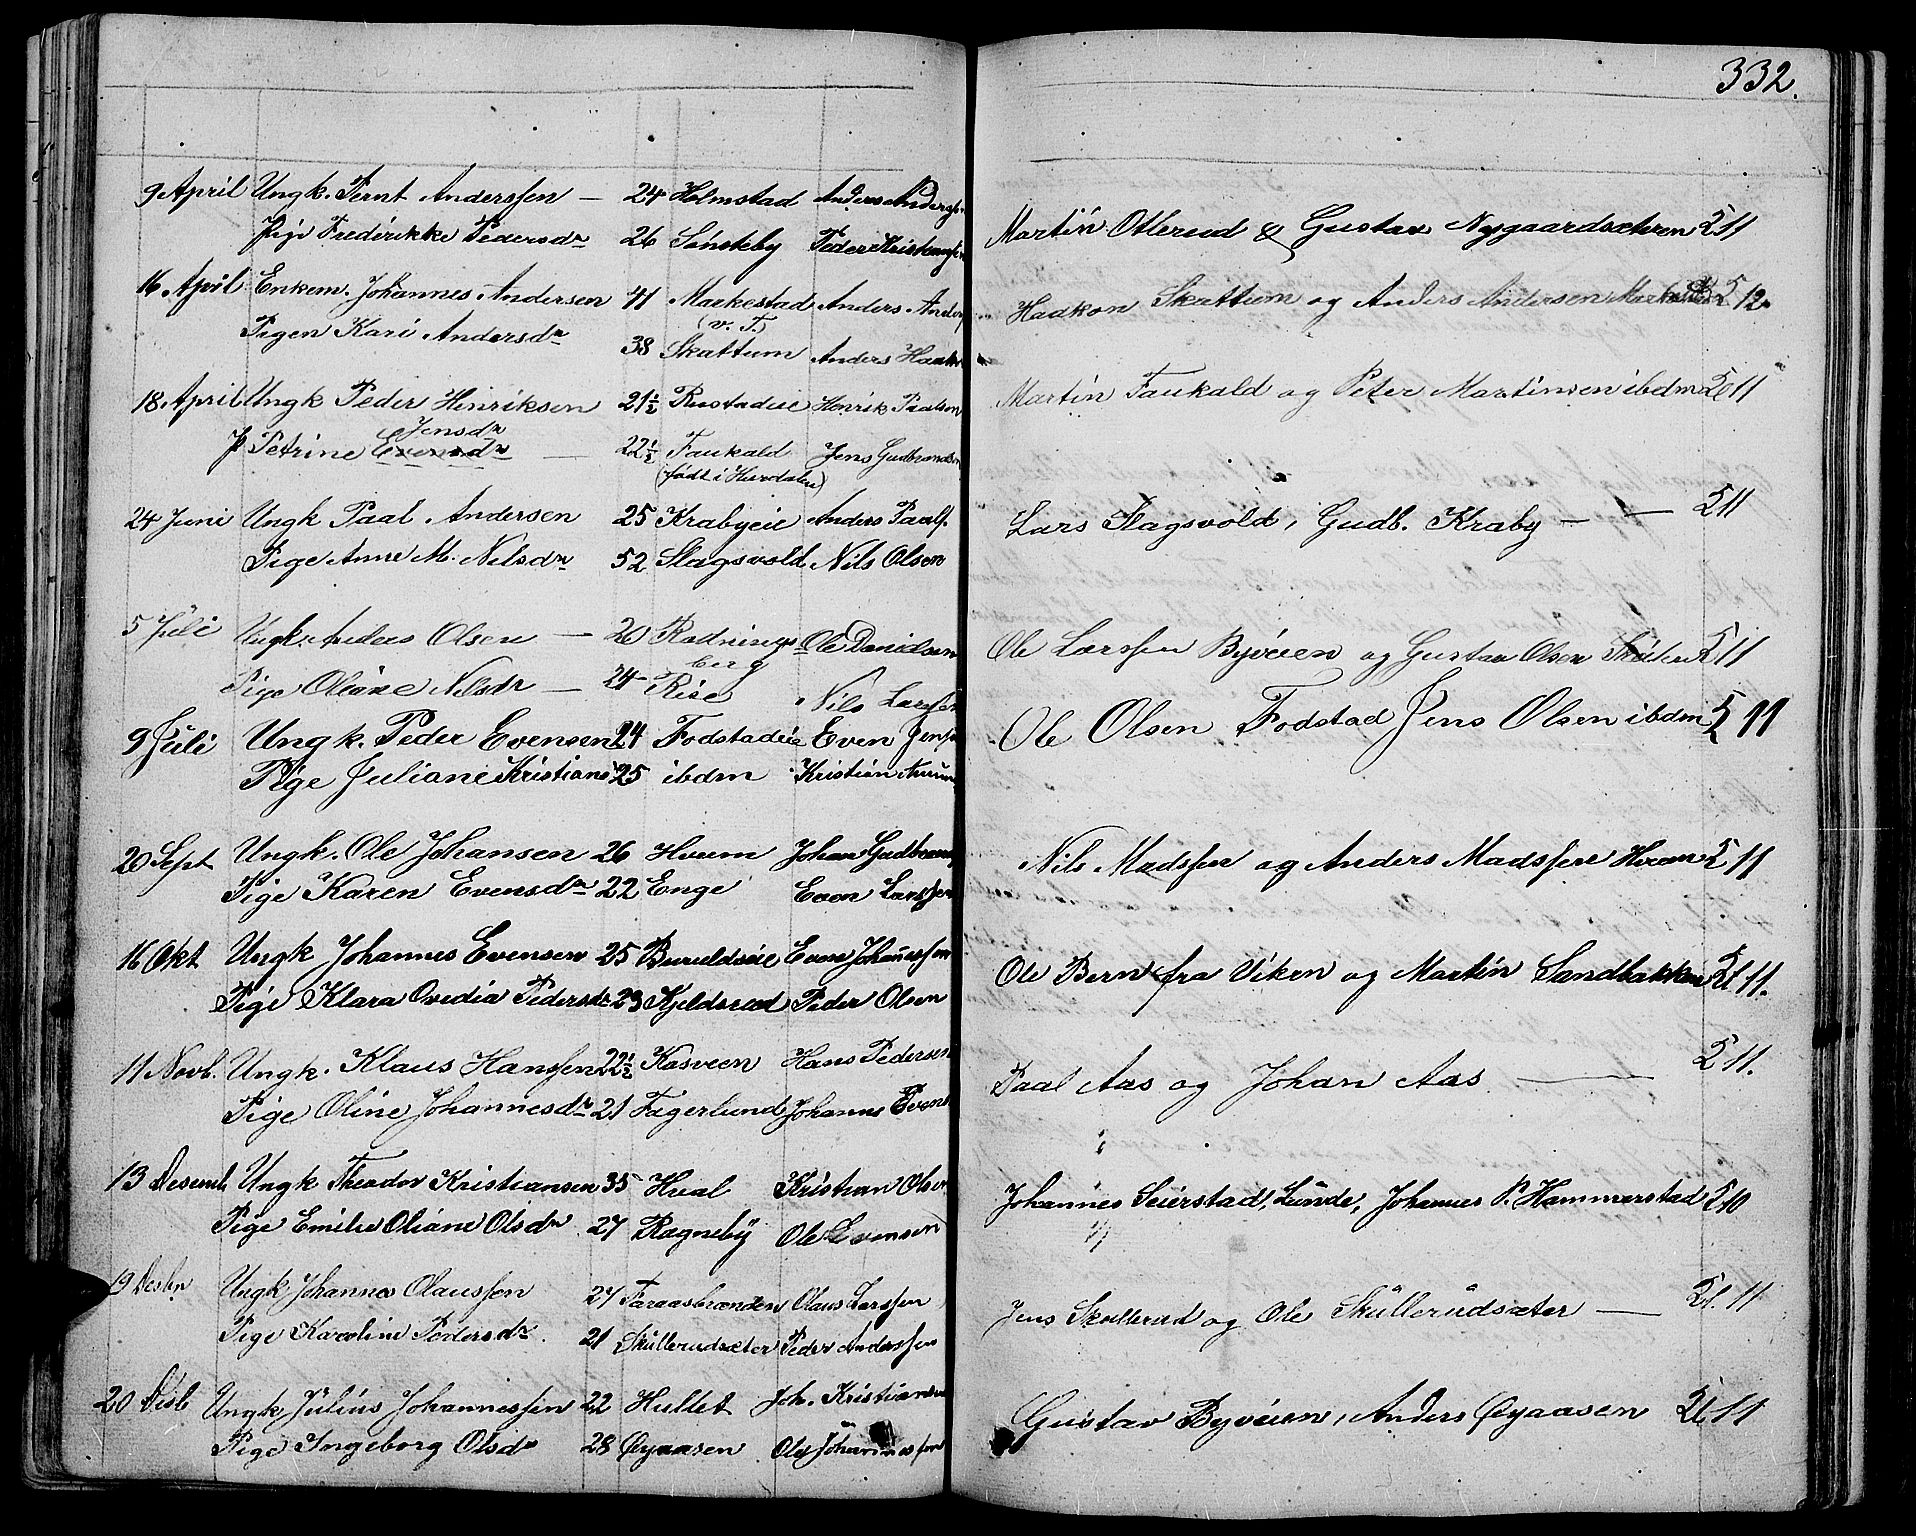 332.
9 April Ungk. Bernt Anderssen — 24 Holmstad Anders Anderss
Martin Otlerud & Gustav Nygaardsæteren 2 11
Pige Frederikke Pedersdr 26 Sønsteby Peder Kristians
16 April Enkem. Johannes Andersen 41 Markestad Anders Anders
(v. T.)
Haakon Skattum og Anders Andersen 2 12
Pigen Kari Andersdr 38 Skattum Anders Haak
18 April Ungk Peder Henriksen 21½ Rustadeie Henrik Paalsen
Martin Faukald og Peter Martinsen ibdm 11
Jensdr
P Petrine Evensdr — 22½ Faukald Jens Gudbrands
(født i Hurdalen)
24 Juni Ungk Paal Andersen 25 Krabyeie Anders Paals.
Lars Slagsvold, Gudb. Kraby — — 2 11
Pige Anne M. Nilsdr 52 Slagsvold Nils Olsen
5 Juli Ungk. Anders Olsen — 26 Rødnings Ole Danielsen
berg
Ole Larssen Byveien og Gustav Olsen 11
Pige Oliane Nilsdr — 24 Rise Nils Larssen
9 Juli Ungk. Peder Evensen 24 Fodstadeie Even Jens
Ole Olsen Fodstad Jens Olsen ibdm 2 11
Pige Juliane Kristians 25 ibdm Kristian
20 Sept Ungk. Ole Johansen 26 Hveem Johan Gudbrans
Nils Madssen og Anders Madssen Hveem 2 11
Pige Karen Evensdr 22 Enge Even Larssen
16 Okt Ungk Johannes Evensen 25 Buruldseie Even Johanessen
Ole Bern fra Viken og Martin Sandbakken 21 11.
Pige Klara Ovedia Pedersdr 23 Kjeldsrud Peder Olsen
11 Novb. Ungk. Klaus Hanssen 22½ Kasveen Hans Pedersen
Paal Aas og Johan Aas — 2 11.
Pige Oline Johannesdr 21 Fagerlund Johannes Evens
13 Desemb Ungk Theodor Kristiansen 35 Hval Kristian Olsen
Johannes Seierstad, Lunde, Johannes P. Hammerstad 2 10
Pige Emilie Oliane Olsdr 27 Ragneby Ole Evensen
19 Desbr Ungk Johannes Olaussen 27 Faraasbrænden Olaus Larssen
Jens Skullerud og Ole Skullerudsæter — 21. 11
Pige Karoline Pedersdr. 21 Skullerudsæter Peder Anderssen
20 Desb Ungk Julius Johannessen 22 Hullet Joh. Kristiansen
Gustav Byveien, Anders Øyaasen 21 11
Pige Ingeborg Olsdr 28 Øyaasen Ole Johannessen